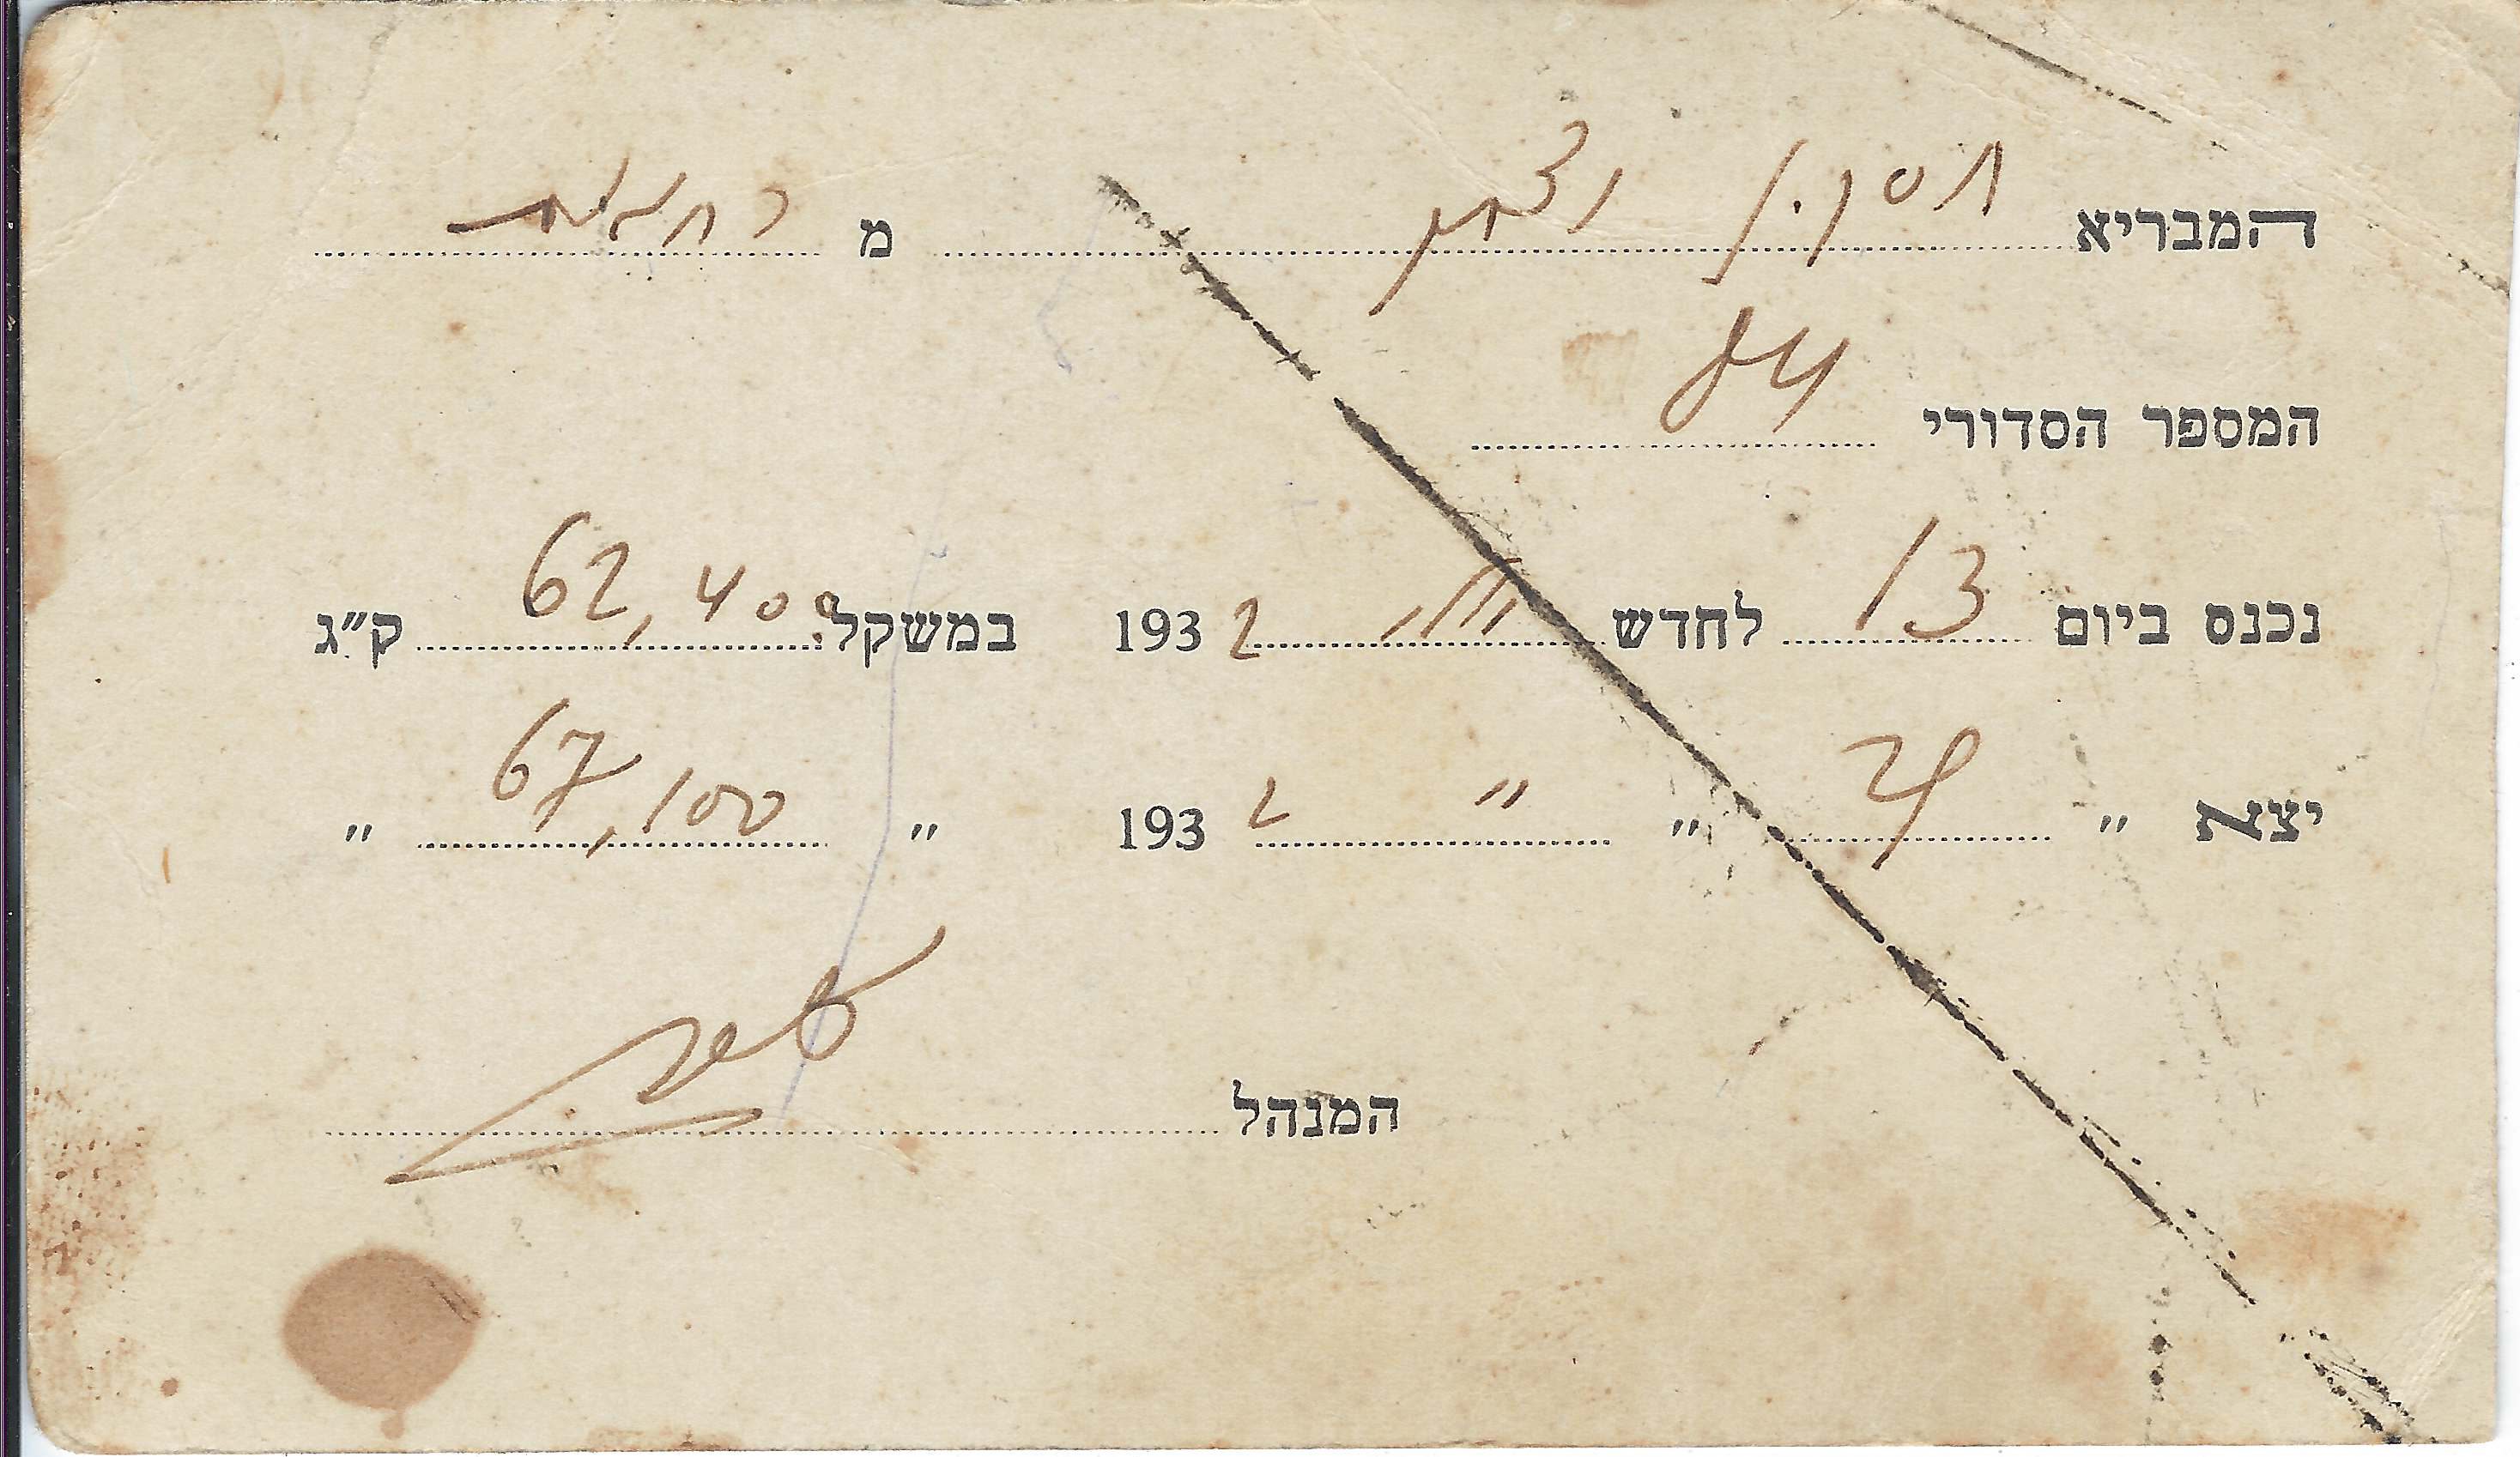 המבריא חסקין יצחק מ רחובות
המספר הסדורי 84
נכנס ביום 13 לחדש 1932 במשקל 62,400 ק״ג
יצא ״ 29 ״ ״ 1932 ״ 67,100 ״
המנהל